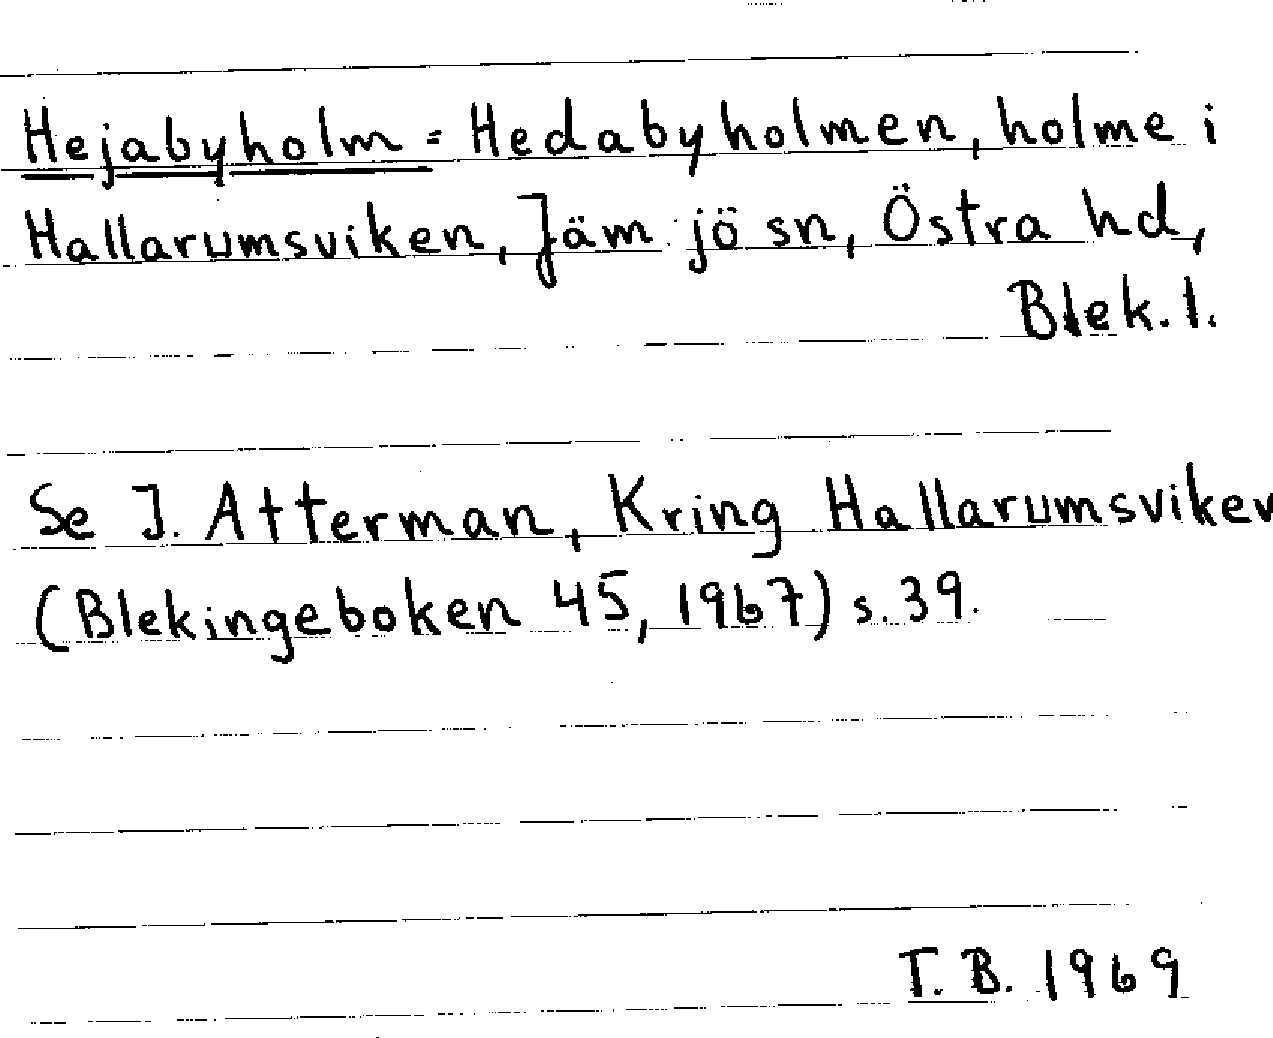 Hejabyholm = Hedabyholmen, holme i
Hallarumsviken, Jämjö sn, Östra hd,
Blek. l.
Se I. Atterman, Kring Hallarumsviken
(Blekingeboken 45, 1967) s. 39.
T. B. 1969